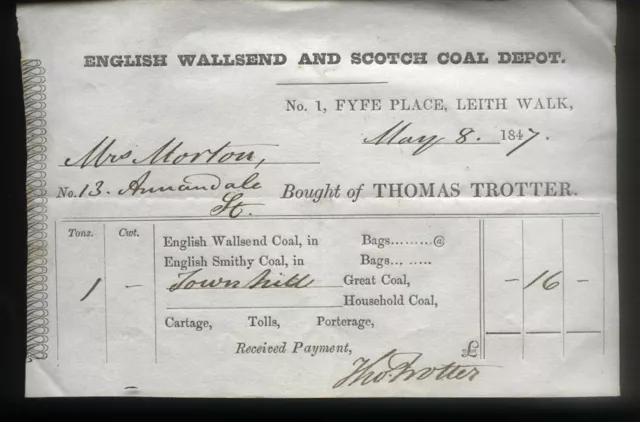 ENGLISH WALLSEND AND SCOTCH COAL DEPOT.
No. 1, FYFE PLACE, LEITH WALK,
May 8. 1847.
Mrs Morton,
No. 13. Annandale St. Bought of THOMAS TROTTER.
Tons. Cwt.
English Wallsend Coal, in Bags.........@
English Smithy Coal, in Bags........
1 - Townhill Great Coal, - 16 -
Household Coal,
Cartage, Tolls, Porterage,
Received Payment, £
Tho. Trotter